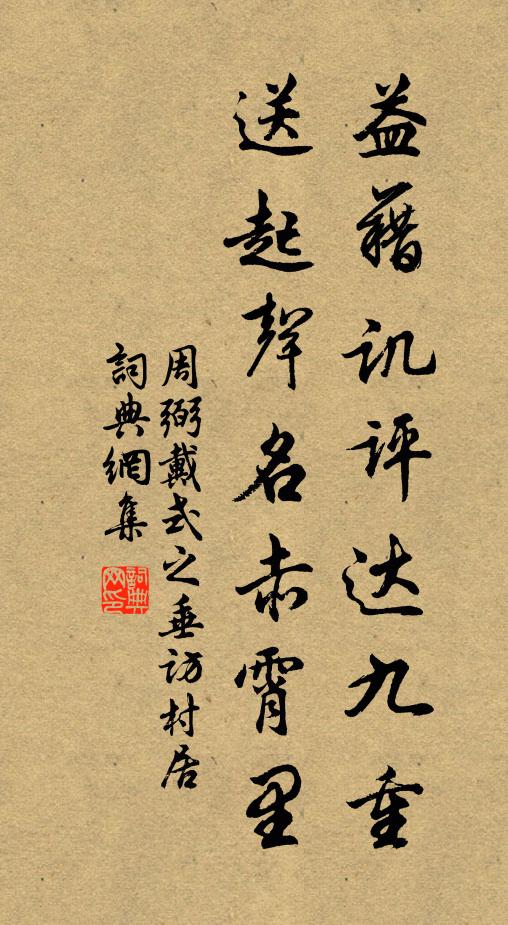 益藉讥评达九重
送起聲名赤霄里
周弼戴式之垂访村居
詞典網集
詞典網印